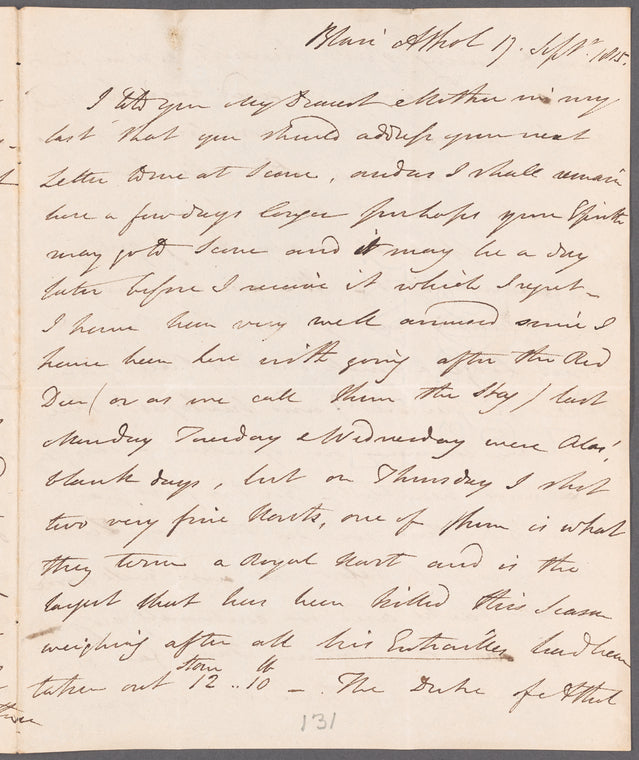 Blair Athol 17. Septr. 1815.
I told you My Dearest Mother in my
last that you should address your next
Letter to me at Scone, and as I shall remain
here a few days longer perhaps your Epistle
may go to Scone and it may be a day
later before I receive it which I regret -
I have been very well amused since I
have been here with going after the Red
Deer (or as we call them the Stag) last
Monday Tuesday & Wednesday were Alas!
blank days, but on Thursday I shot
two very fine Harts, one of them is what
they term a Royal Hart and is the
largest that has been killed this Season
weighing after all his Entrailles had been
taken out 12 stone .. 10 lb - The Duke of Athol
131